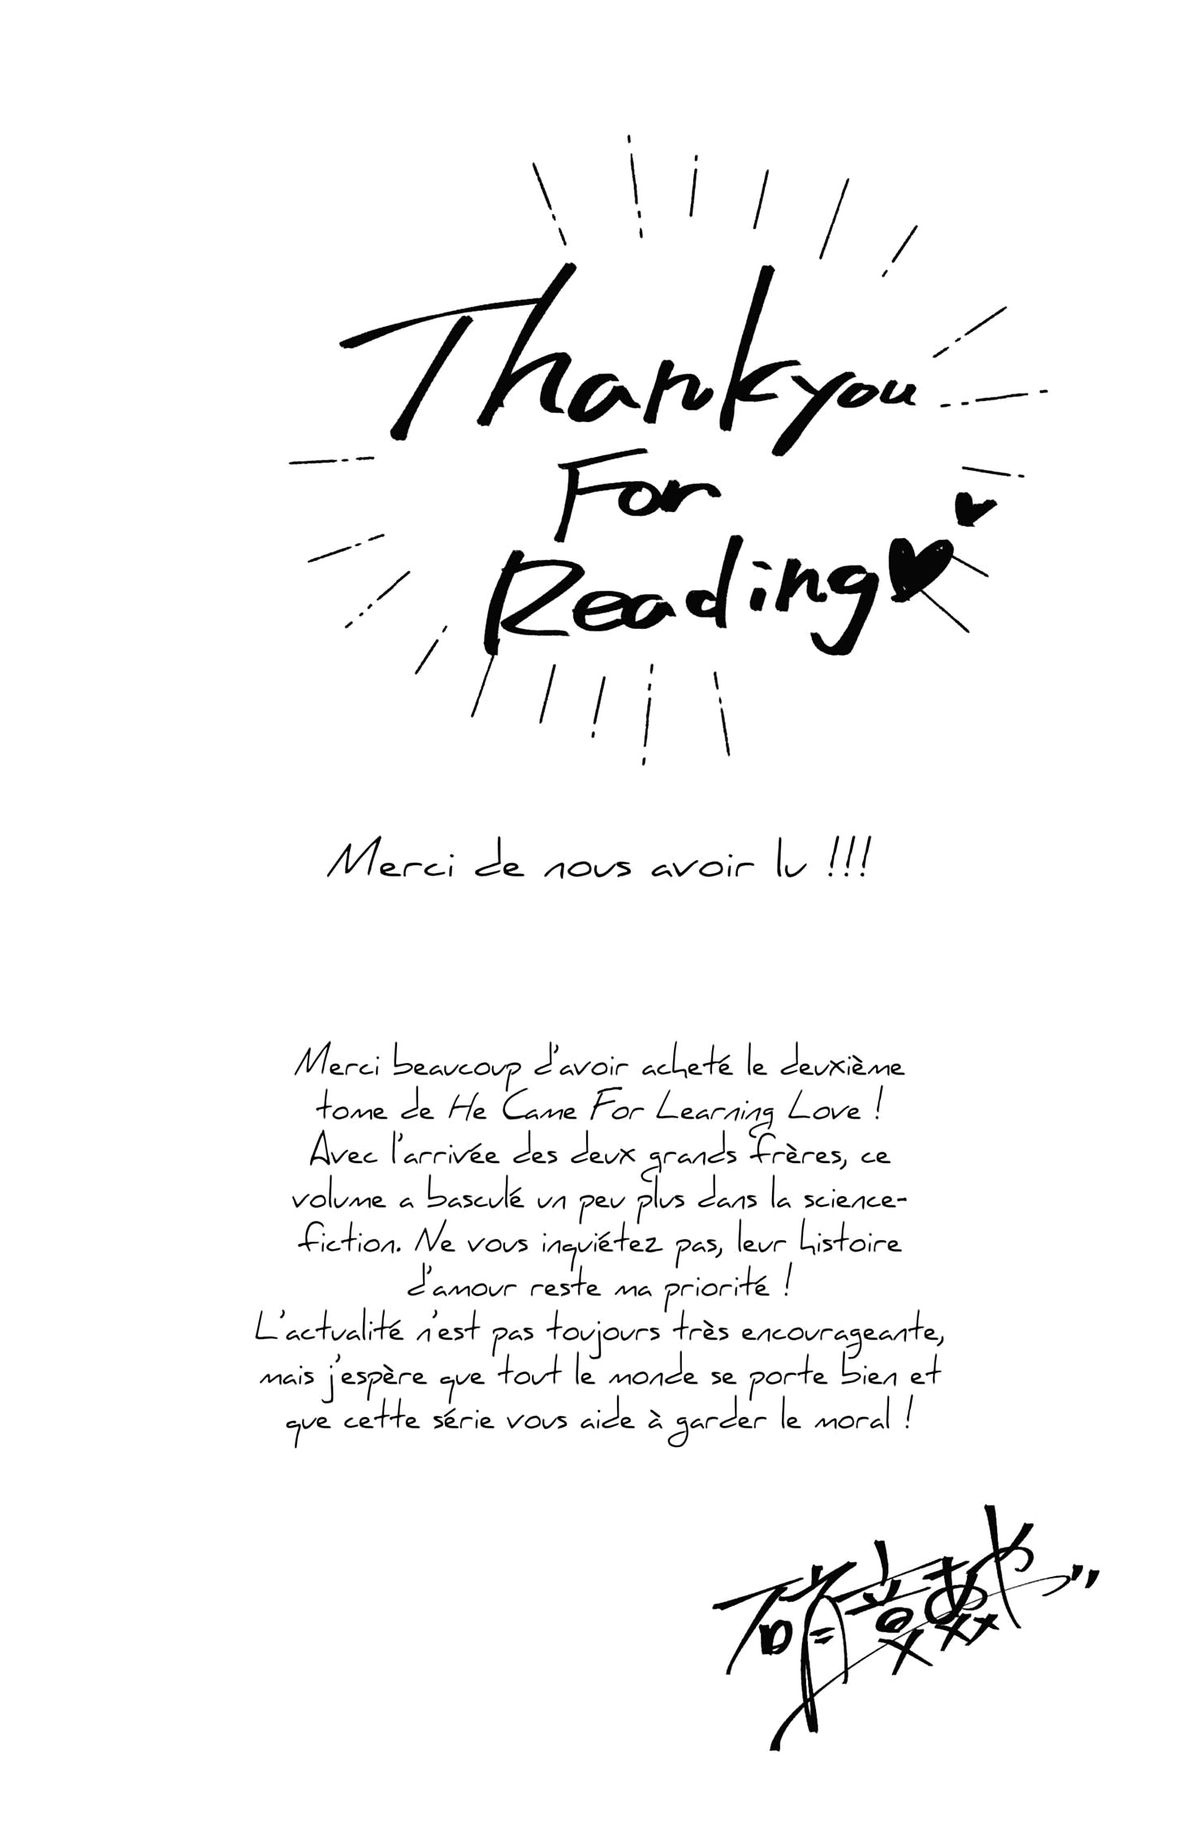 Thankyou
For
Reading
Merci de nous avoir lu !!!
Merci beaucoup d'avoir acheté le deuxième
tome de He Came For Learning Love !
Avec l'arrivée des deux grands frères, ce
volume a basculé un peu plus dans la science-
fiction. Ne vous inquiétez pas, leur histoire
d'amour reste ma priorité !
L'actualité n'est pas toujours très encourageante,
mais j'espère que tout le monde se porte bien et
que cette série vous aide à garder le moral !